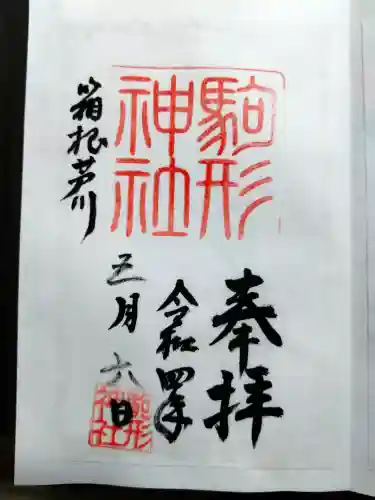 奉拝
駒形
神社
令和四年
五月六日
箱根芦川
駒形
神社